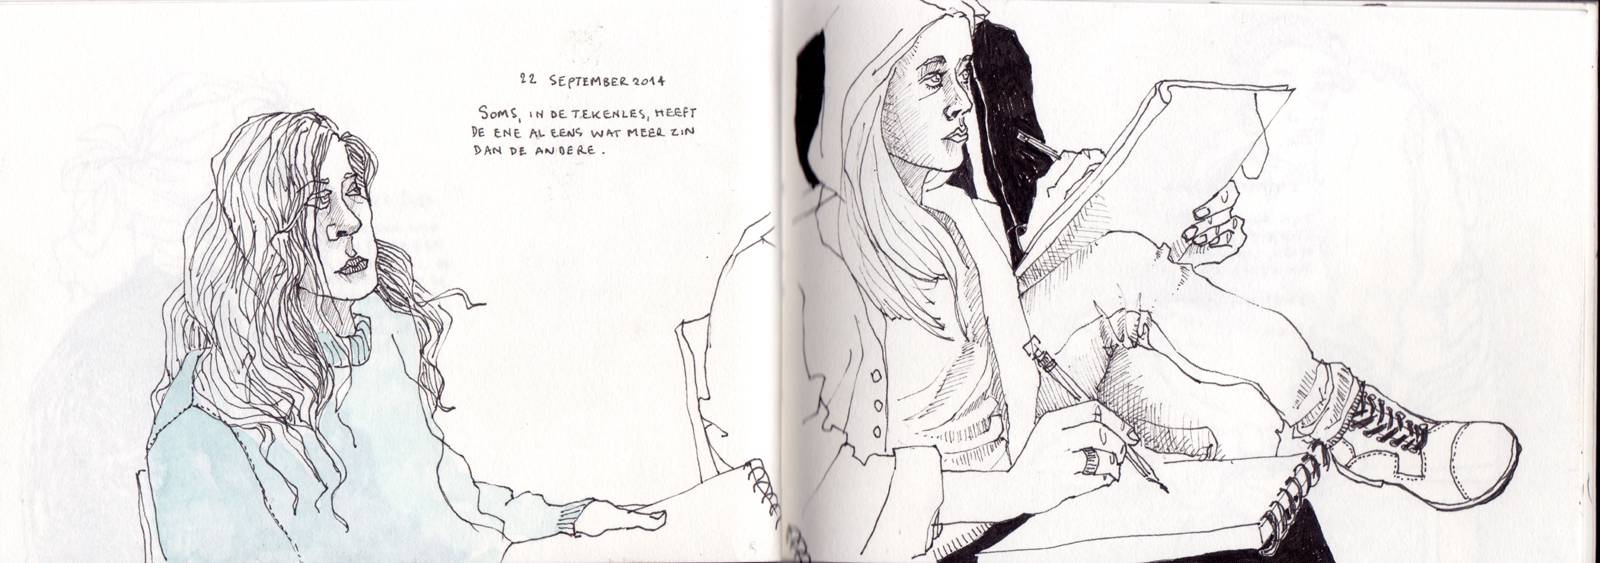 22 SEPTEMBER 2014
SOMS, IN DE TEKENLES, HEEFT
DE ENE AL EENS WAT MEER ZIN
DAN DE ANDERE.